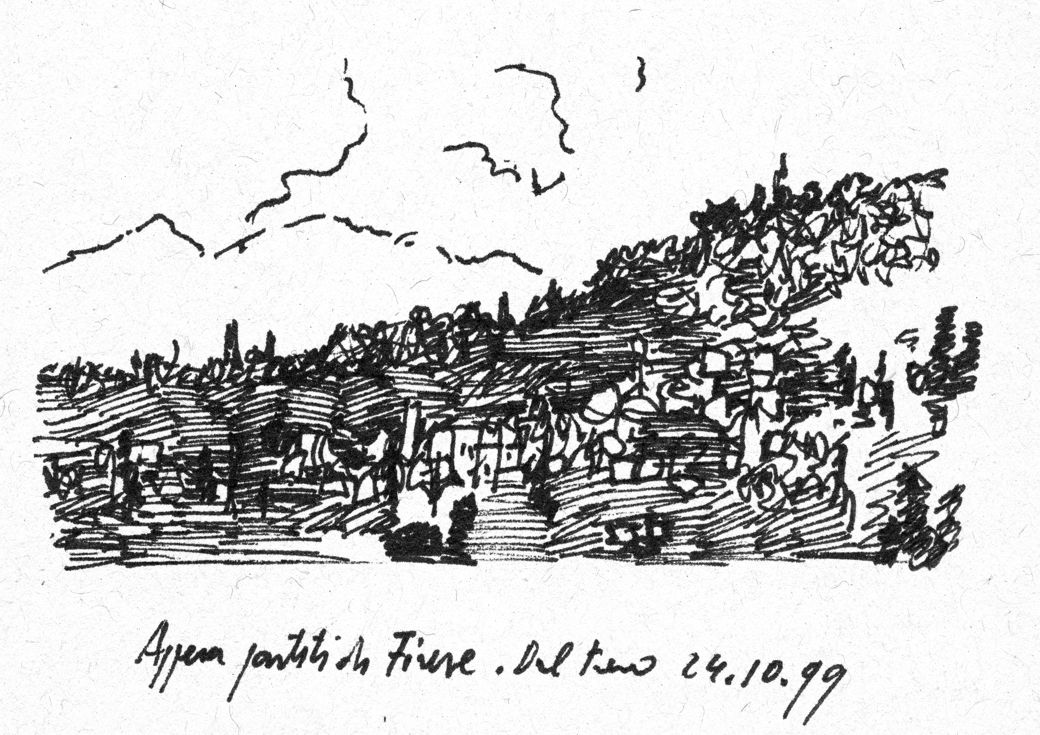 Appena partiti da Firenze. Dal treno 24.10.99